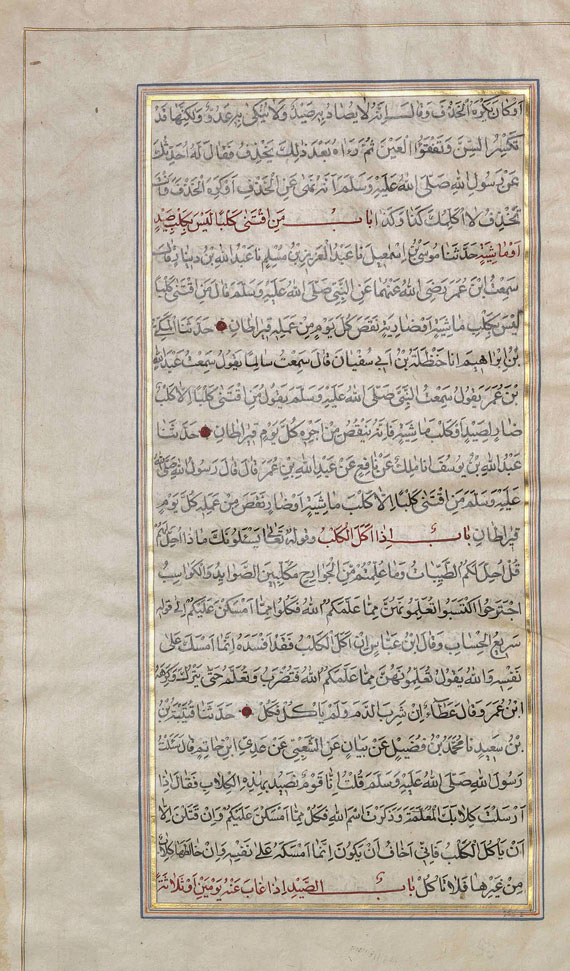 أو كان يكره الخذف وقال انه لا يصاد به صيد ولا ينكى به عدو ولكنها قد
تكسر السن وتفقؤا العين ثم رءاه بعد ذلك يخذف فقال له احدثك
عن رسول الله صلى الله عليه وسلم انه نهى عن الخذف او كره الخذف وانت
تخذف لا اكلمك كذا وكذا باب من اقتنى كلبا ليس بكلب صيد
او ماشية حدثنا موسى بن اسمعيل نا عبد العزيز بن مسلم نا عبد الله بن دينار قال
سمعت ابن عمر رضى الله عنهما عن النبي صلى الله عليه وسلم قال من اقتنى كلبا
ليس بكلب ماشية او ضارية نقص كل يوم من عمله قيراطان حدثنا المكي
بن ابراهيم انا حنظلة بن ابي سفيان قال سمعت سالما يقول سمعت عبد الله
بن عمر يقول سمعت النبي صلى الله عليه وسلم يقول من اقتنى كلبا الا كلب
ضار لصيد او كلب ماشية فانه ينقص من اجره كل يوم قيراطان حدثنا
عبد الله بن يوسف انا ملك عن نافع عن عبد الله بن عمر قال قال رسول الله صلى الله
عليه وسلم من اقتنى كلبا الا كلب ماشية او ضار نقص من عمله كل يوم
قيراطان باب اذا اكل الكلب وقوله تعالى يسئلونك ماذا احل لهم
قل احل لكم الطيبات وما علمتم من الجوارح مكلبين الصوايد والكواسب
اجترحوا اكتسبوا تعلمونهن مما علمكم الله فكلوا مما امسكن عليكم الى قوله
سريع الحساب وقال ابن عباس ان اكل الكلب فقد افسده انما امسك على
نفسه والله يقول تعلمونهن مما علمكم الله فتضرب وتعلم حتى يترك وكرهه
ابن عمر وقال عطاء ان شرب الدم ولم ياكل فكل حدثنا قتيبة بن
بن سعيد نا محمد بن فضيل عن بيان عن الشعبي عن عدي ابن حاتم قال سئلت
رسول الله صلى الله عليه وسلم قلت انا قوم نصيد بهذه الكلاب فقال اذا
ارسلت كلابك المعلمة وذكرت اسم الله فكل مما امسكن عليكم وان قتلن الا
ان ياكل الكلب فاني اخاف ان يكون انما امسكه على نفسه وان خالطها كلاب
من غيرها فلا تاكل باب الصيد اذا غاب عنه يومين او ثلاثة